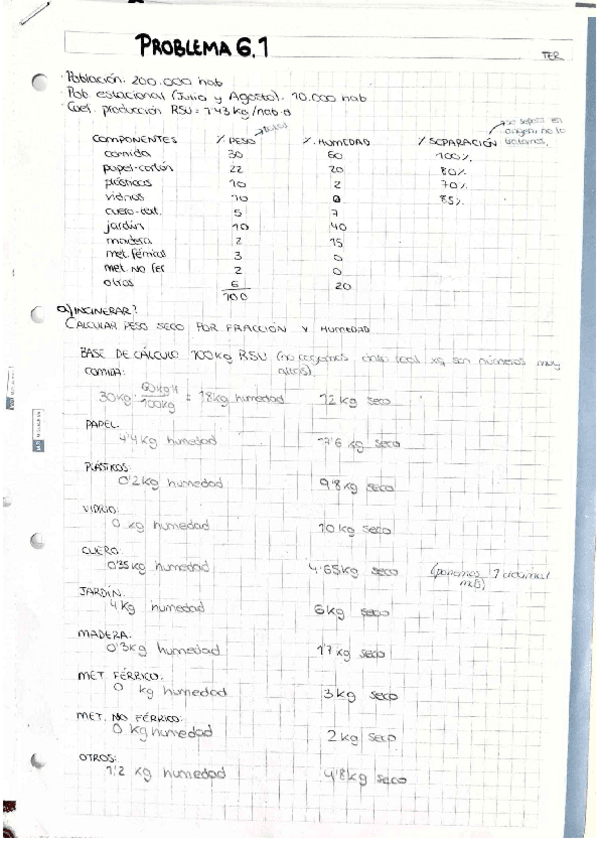 PROBLEMA 6.1
TER
· Población: 200.000 hab
· Pob. estacional (Julio y Agosto): 10.000 hab
· Coef. producción RSU = 1'43 kg/hab·d
COMPONENTES % PESO % HUMEDAD % SEPARACIÓN
comida 30 60 100%
papel-cartón 22 20 80%
plásticos 10 2 70%
vidrios 10 0 85%
cuero-text. 5 7
jardín 10 40
madera 2 15
met. férricos 3 0
met. no fer 2 0
otros 6 20
100
a) ¿INCINERAR?
CALCULAR PESO SECO POR FRACCIÓN Y HUMEDAD
BASE DE CÁLCULO 100kg RSU (no cogemos dato real xq son números muy
altos).
COMIDA:
30kg · 60kgH / 100kg = 18kg humedad 12 kg seco
PAPEL:
4'4 kg humedad 17'6 kg seco
PLÁSTICOS:
0'2 kg humedad 9'8 kg seco
VIDRIO:
0 kg humedad 10 kg seco
CUERO:
0'35 kg humedad 4'65 kg seco (ponemos 1 decimal
más)
JARDÍN:
4 kg humedad 6 kg seco
MADERA:
0'3 kg humedad 1'7 kg seco
MET. FÉRRICO:
0 kg humedad 3 kg seco
MET. NO FÉRRICO:
0 kg humedad 2 kg seco
OTROS:
1'2 kg humedad 4'8 kg seco